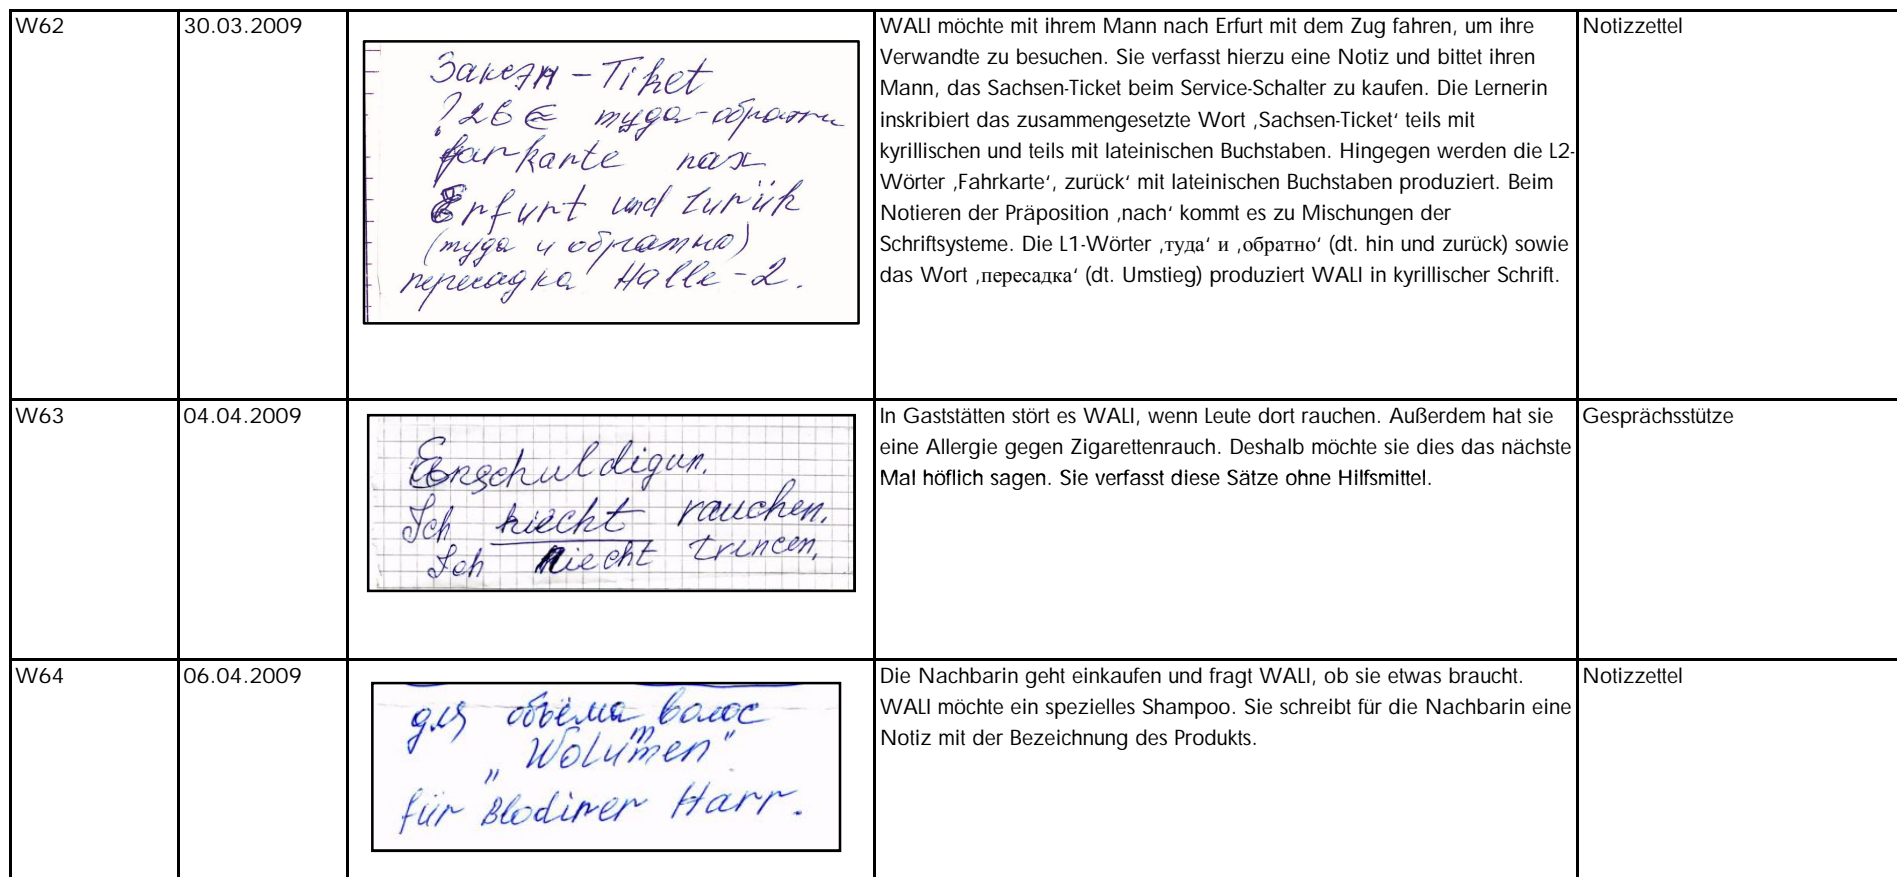 W62
30.03.2009
-Tiket
?26 € туда-обратно
farkarte nax
Erfurt und zurük
(туда и обратно)
пересадка Halle-2.
WALI möchte mit ihrem Mann nach Erfurt mit dem Zug fahren, um ihre
Verwandte zu besuchen. Sie verfasst hierzu eine Notiz und bittet ihren
Mann, das Sachsen-Ticket beim Service-Schalter zu kaufen. Die Lernerin
inskribiert das zusammengesetzte Wort ‚Sachsen-Ticket‘ teils mit
kyrillischen und teils mit lateinischen Buchstaben. Hingegen werden die L2-
Wörter ‚Fahrkarte‘, zurück‘ mit lateinischen Buchstaben produziert. Beim
Notieren der Präposition ‚nach‘ kommt es zu Mischungen der
Schriftsysteme. Die L1-Wörter ‚туда‘ и ‚обратно‘ (dt. hin und zurück) sowie
das Wort ‚пересадка‘ (dt. Umstieg) produziert WALI in kyrillischer Schrift.
Notizzettel
W63
04.04.2009
Enschuldigun.
Ich niecht rauchen.
Ich niecht trincen.
In Gaststätten stört es WALI, wenn Leute dort rauchen. Außerdem hat sie
eine Allergie gegen Zigarettenrauch. Deshalb möchte sie dies das nächste
Mal höflich sagen. Sie verfasst diese Sätze ohne Hilfsmittel.
Gesprächsstütze
W64
06.04.2009
для объёма волос
„Wolumen"
für Blodiner Harr.
Die Nachbarin geht einkaufen und fragt WALI, ob sie etwas braucht.
WALI möchte ein spezielles Shampoo. Sie schreibt für die Nachbarin eine
Notiz mit der Bezeichnung des Produkts.
Notizzettel